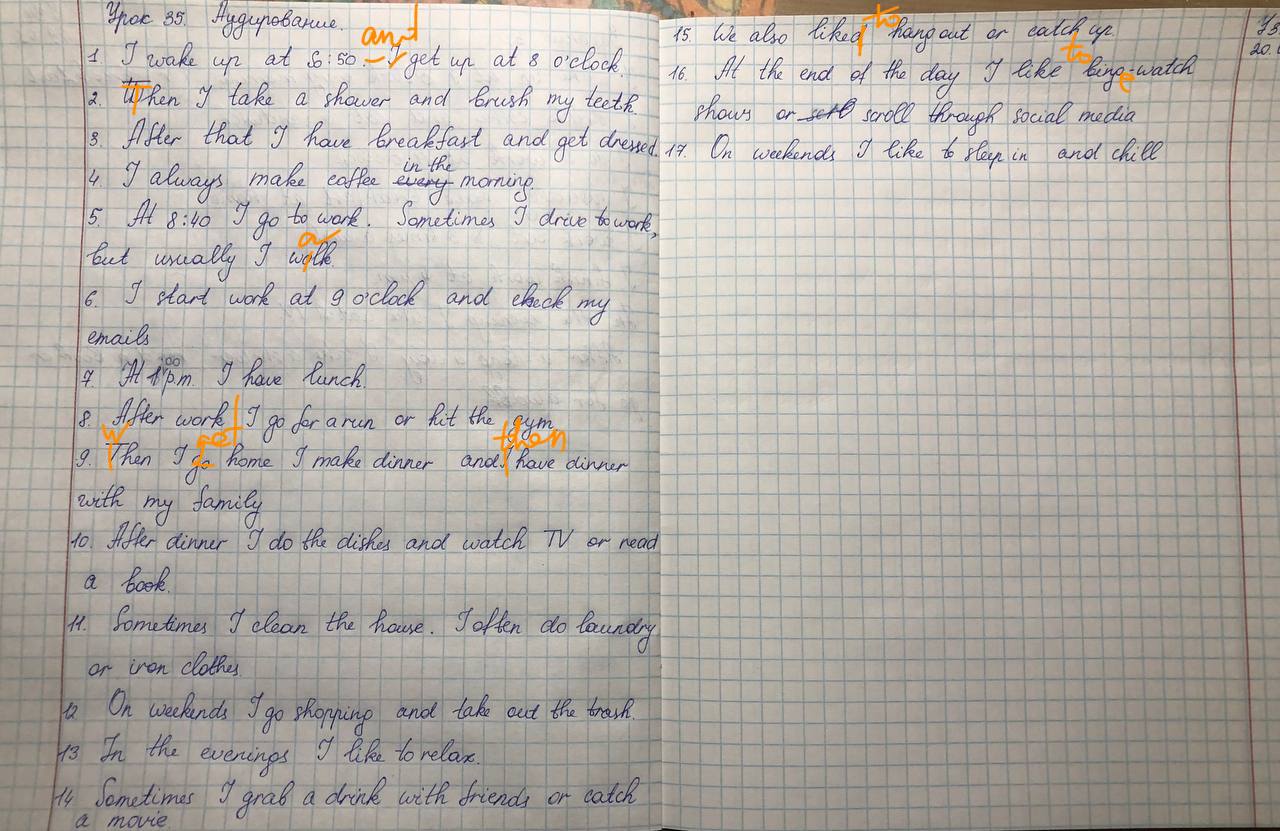 Урок 35. Аудирование.
and
1. I wake up at 6:50. I get up at 8 o'clock.
2. Then I take a shower and brush my teeth.
3. After that I have breakfast and get dressed.
in the
4. I always make coffee every morning.
5. At 8:40 I go to work. Sometimes I drive to work,
a
but usually I walk.
6. I start work at 9 o'clock and check my
emails
7 At 1:00 p.m. I have lunch.
8. After work I go for a run or hit the gym
W get then
9. Then I go home I make dinner and I have dinner
with my family
10. After dinner I do the dishes and watch TV or read
a book.
11. Sometimes I clean the house. I often do laundry
or iron clothes.
12 On weekends I go shopping and take out the trash.
13 In the evenings I like to relax.
14 Sometimes I grab a drink with friends or catch
a movie
to
15. We also liked hang out or catch up.
to
16. At the end of the day I like binge-watch
shows or scroll through social media
17. On weekends I like to sleep in and chill
20.